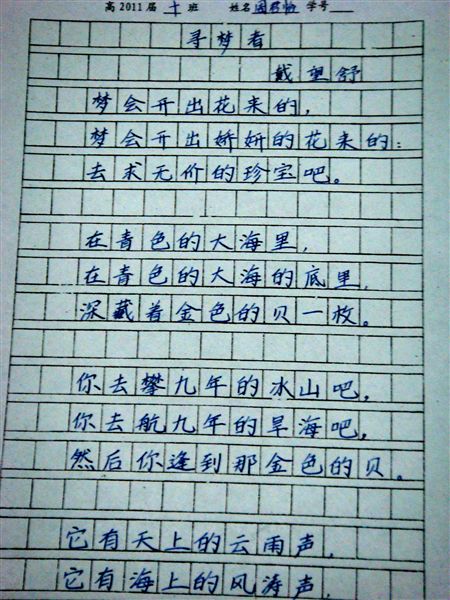 高2011届 十 班 姓名 学号
寻梦者
戴望舒
梦会开出花来的,
梦会开出娇妍的花来的:
去求无价的珍宝吧。
在青色的大海里,
在青色的大海的底里,
深藏着金色的贝一枚。
你去攀九年的冰山吧,
你去航九年的旱海吧,
然后你逢到那金色的贝。
它有天上的云雨声,
它有海上的风涛声,